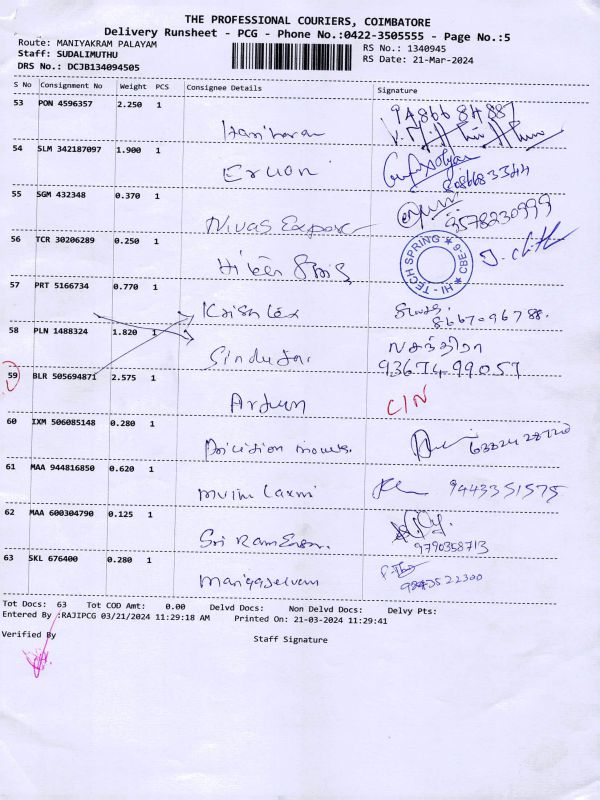 THE PROFESSIONAL COURIERS, COIMBATORE
Delivery Runsheet - PCG - Phone No.:0422-3505555 - Page No.:5
Route: MANIYAKRAM PALAYAM
Staff: SUDALIMUTHU
DRS No.: DCJB134094505
RS No.: 1340945
RS Date: 21-Mar-2024
S No Consignment No Weight PCS Consignee Details Signature
53 PON 4596357 2.250 1
Hariharan
94866 84887
54 SLM 342187097 1.900 1
8086683344
55 SGM 432348 0.370 1
Nivas Expor
9578230999
56 TCR 30206289 0.250 1
HI-TECH SPRING CBE-6
57 PRT 5166734 0.770 1
Krish tex
8667096788.
58 PLN 1488324 1.820 1
Sinduja.
93674 99057
59 BLR 505694871 2.575 1
Arjun
60 IXM 506085148 0.280 1
63824 28720
61 MAA 944816850 0.620 1
9443351575
62 MAA 600304790 0.125 1
Sri Ram
9790358713
63 SKL 676400 0.280 1
22300
Tot Docs: 63 Tot COD Amt: 0.00 Delvd Docs: Non Delvd Docs: Delvy Pts:
Entered By :RAJIPCG 03/21/2024 11:29:18 AM Printed On: 21-03-2024 11:29:41
Verified By
Staff Signature